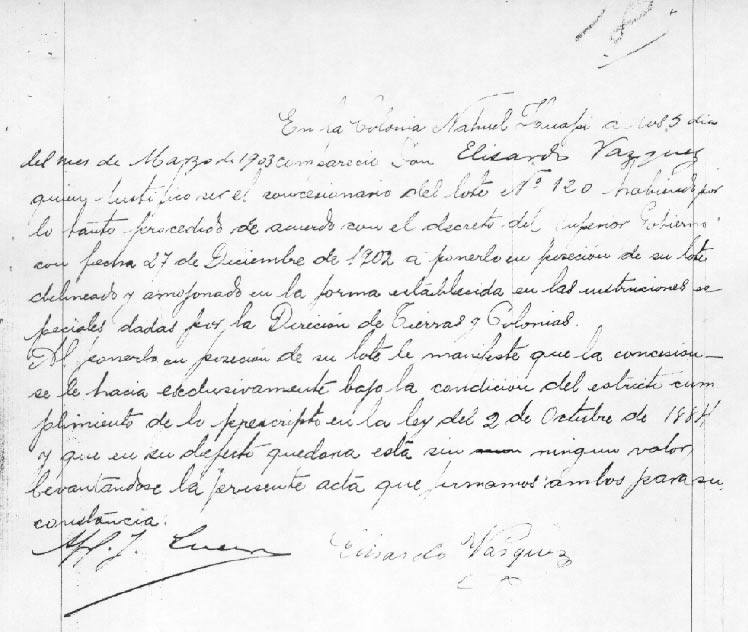 En la Colonia Nahuel Huapi a los 5 dias
del mes de Marzo de 1903 comparecio Don Elisardo Vazquez
quien justifico ser el concesionario del lote Nº 120 habiendo por
lo tanto procedido de acuerdo con el decreto del Superior Gobierno
con fecha 27 de Diciembre de 1902 a ponerlo en posecion de su lote
delineado y amojonado en la forma establecida en las instruciones es
peciales dadas por la Direcion de Tierras y Colonias.
Al ponerlo en posecion de su lote le manifesté que la concesion
se le hacia exclusivamente bajo la condicion del estricto cum
plimiento de lo prescripto en la ley del 2 de Octubre de 1884
y que en su defecto quedaria está sin ningun valor,
levantandose la presente actá que firmamos ambos para su
constancia.
Elisardo Vasquez